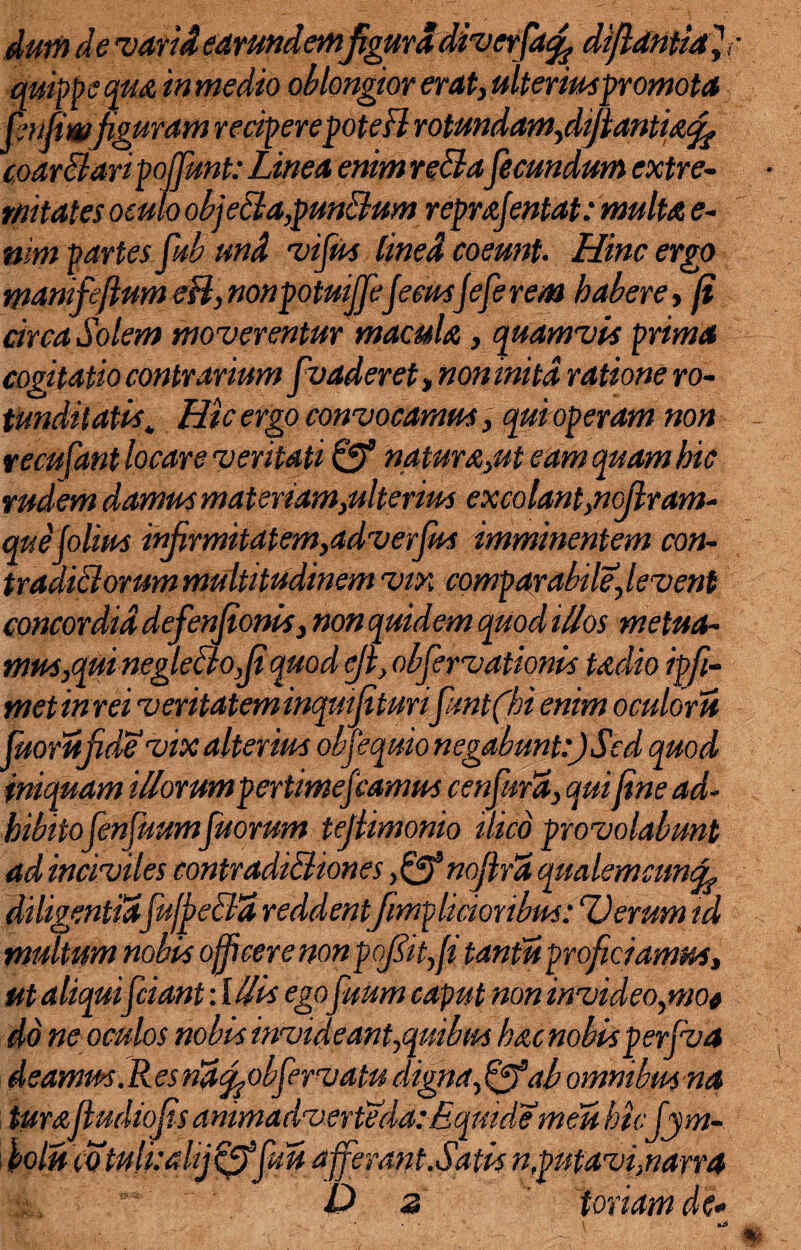 dum de variâ earundem figurâ diversaq́; distantia,
quippe quæ in medio oblongior erat, ulterius promota
sensim figuram recipere potest rotundam, distantiæq́;
coarctari possunt: Linea enim recta secundum extre-
mitates oculo objecta, punctum repræsentat: multæ e-
nim partes sub unâ visus lineâ coeunt. Hinc ergo
manifestum est, non potuisse secus sese rem habere, si
circa Solem moverentur maculæ, quamvis prima
cogitatio contrarium svaderet, non initâ ratione ro-
tunditatis. Hîc ergo convocamus, qui operam non
recusant locare veritati & naturæ, ut eam quam hic
rudem damus materiam, ulterius excolant, nostram-
què solius infirmitatem, adversus imminentem con-
tradictorum multitudinem vix comparabilē, levent
concordiâ defensionis, non quidem quod illos metua-
mus, qui neglecto, si quod est, observationis tædio ipsi-
met in rei veritatem inquisituri sunt (hi enim oculorū
suorū fidē vix alterius obsequio negabunt:) Sed quod
iniquam illorum pertimescamus censurā, qui sine ad-
hibito sensuum suorum testimonio ilicò provolabunt
ad inciviles contradictiones, & nostrā qualemcunq́;
diligentiā suspectā reddent simplicioribus: Verum id
multum nobis officere non possit, si tantū proficiamus,
ut aliqui sciant: Illis ego suum caput non invideo, mo-
dò ne oculos nobis invideant, quibus hæc nobis persva
deamus. Res nāq́; observatu digna, & ab omnibus na
turæ studiosis animadvertēda: Equidē meū hîc sym-
bolū cōtuli: alij & suū afferant. Satis n. putavi, narra
D 2 toriam de-